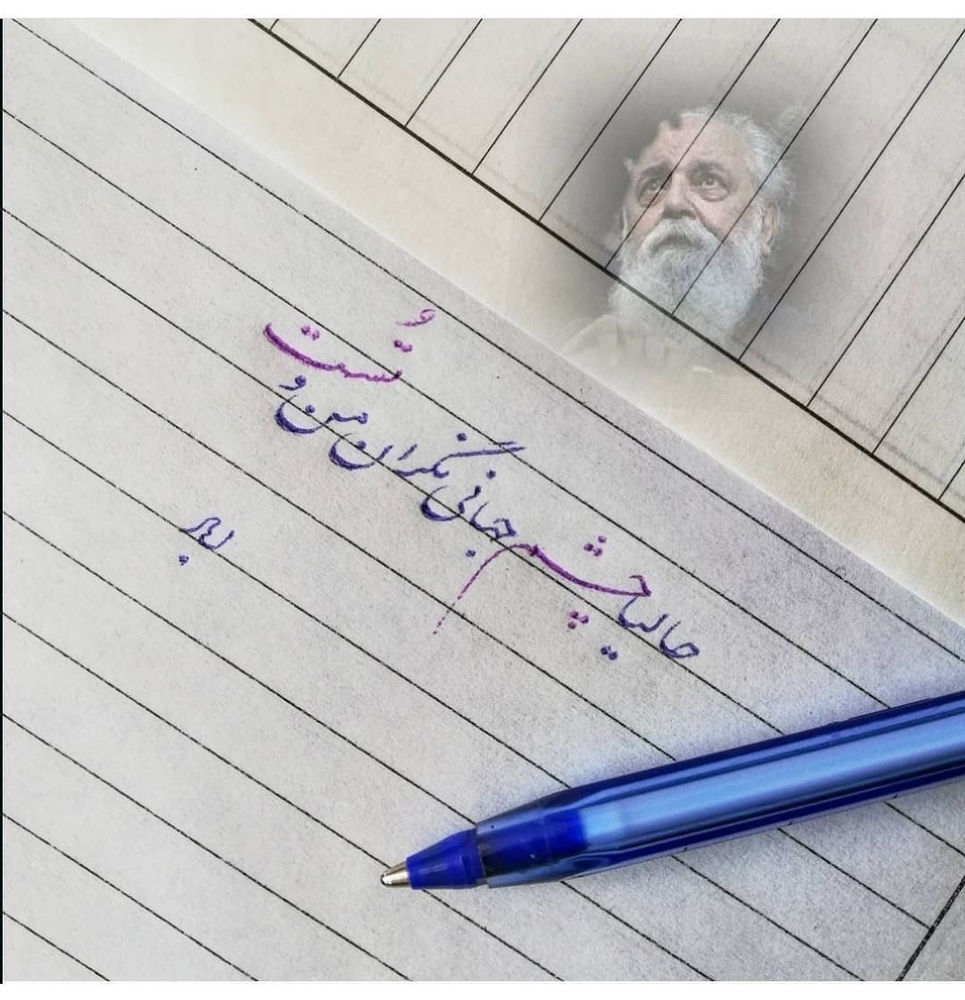 حالیا چشم جهانی نگران من و تُست